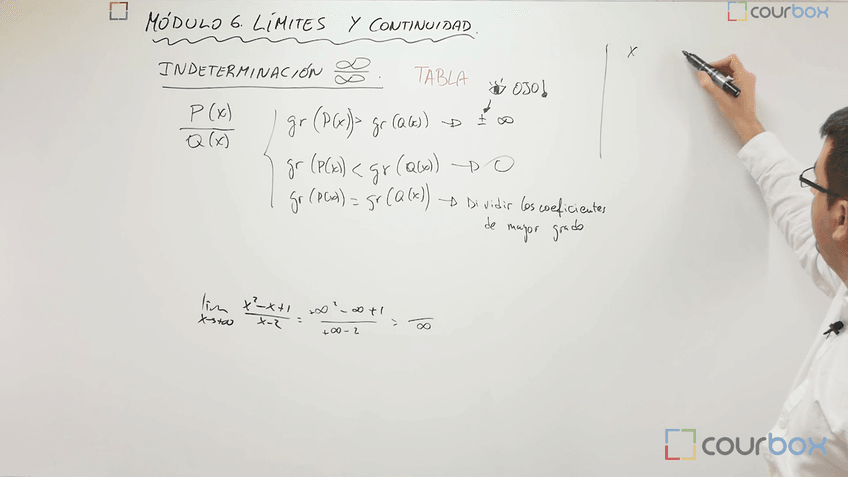 MÓDULO 6. LÍMITES Y CONTINUIDAD.
courbox
INDETERMINACIÓN ∞/∞. TABLA
OJO!
P(x)/Q(x)
gr(P(x)) > gr(Q(x)) → ± ∞
gr(P(x)) < gr(Q(x)) → 0
gr(P(x)) = gr(Q(x)) → Dividir los coeficientes
de mayor grado
x
lim x→+∞ x²-x+1/x-2 = +∞²-∞+1/+∞-2 = /∞
courbox